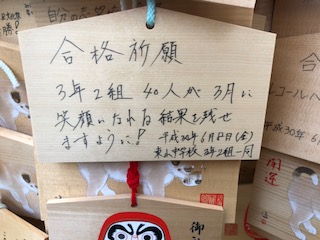 合格祈願
3年2組 40人が 3月に
笑顔になれる結果を残せ
ますように!
平成30年6月8日(金)
中学校 3年2組一同
自分の
勝!
コールへ
平成30年 6
開運
御